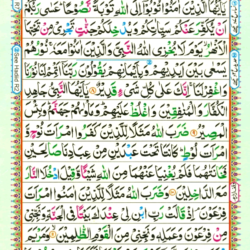 يٰٓاَيُّهَا الَّذِيْنَ اٰمَنُوْا تُوْبُوْٓا اِلَى اللّٰهِ تَوْبَةً نَّصُوْحًا عَسٰى رَبُّكُمْ
اَنْ يُّكَفِّرَ عَنْكُمْ سَيِّاٰتِكُمْ وَيُدْخِلَكُمْ جَنّٰتٍ تَجْرِيْ مِنْ تَحْتِهَا
الْاَنْهٰرُ يَوْمَ لَا يُخْزِى اللّٰهُ النَّبِيَّ وَالَّذِيْنَ اٰمَنُوْا مَعَهٗ نُوْرُهُمْ
يَسْعٰى بَيْنَ اَيْدِيْهِمْ وَبِاَيْمَانِهِمْ يَقُوْلُوْنَ رَبَّنَآ اَتْمِمْ لَنَا نُوْرَنَا
وَاغْفِرْ لَنَا اِنَّكَ عَلٰى كُلِّ شَيْءٍ قَدِيْرٌ يٰٓاَيُّهَا النَّبِيُّ جَاهِدِ
الْكُفَّارَ وَالْمُنٰفِقِيْنَ وَاغْلُظْ عَلَيْهِمْ وَمَاْوٰىهُمْ جَهَنَّمُ وَبِئْسَ
الْمَصِيْرُ ضَرَبَ اللّٰهُ مَثَلًا لِّلَّذِيْنَ كَفَرُوا امْرَاَتَ نُوْحٍ
وَّامْرَاَتَ لُوْطٍ كَانَتَا تَحْتَ عَبْدَيْنِ مِنْ عِبَادِنَا صَالِحَيْنِ
فَخَانَتٰهُمَا فَلَمْ يُغْنِيَا عَنْهُمَا مِنَ اللّٰهِ شَيْئًا وَّقِيْلَ ادْخُلَا النَّارَ
مَعَ الدّٰخِلِيْنَ وَضَرَبَ اللّٰهُ مَثَلًا لِّلَّذِيْنَ اٰمَنُوا امْرَاَتَ
فِرْعَوْنَ اِذْ قَالَتْ رَبِّ ابْنِ لِيْ عِنْدَكَ بَيْتًا فِى الْجَنَّةِ وَنَجِّنِيْ
مِنْ فِرْعَوْنَ وَعَمَلِهٖ وَنَجِّنِيْ مِنَ الْقَوْمِ الظّٰلِمِيْنَ وَمَرْيَمَ